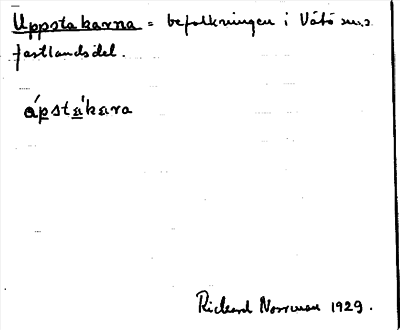 Uppstakarna = befolkningen i Vätö sn:s
fastlandsdel.
ápstákara
Rickard Norrman 1929.